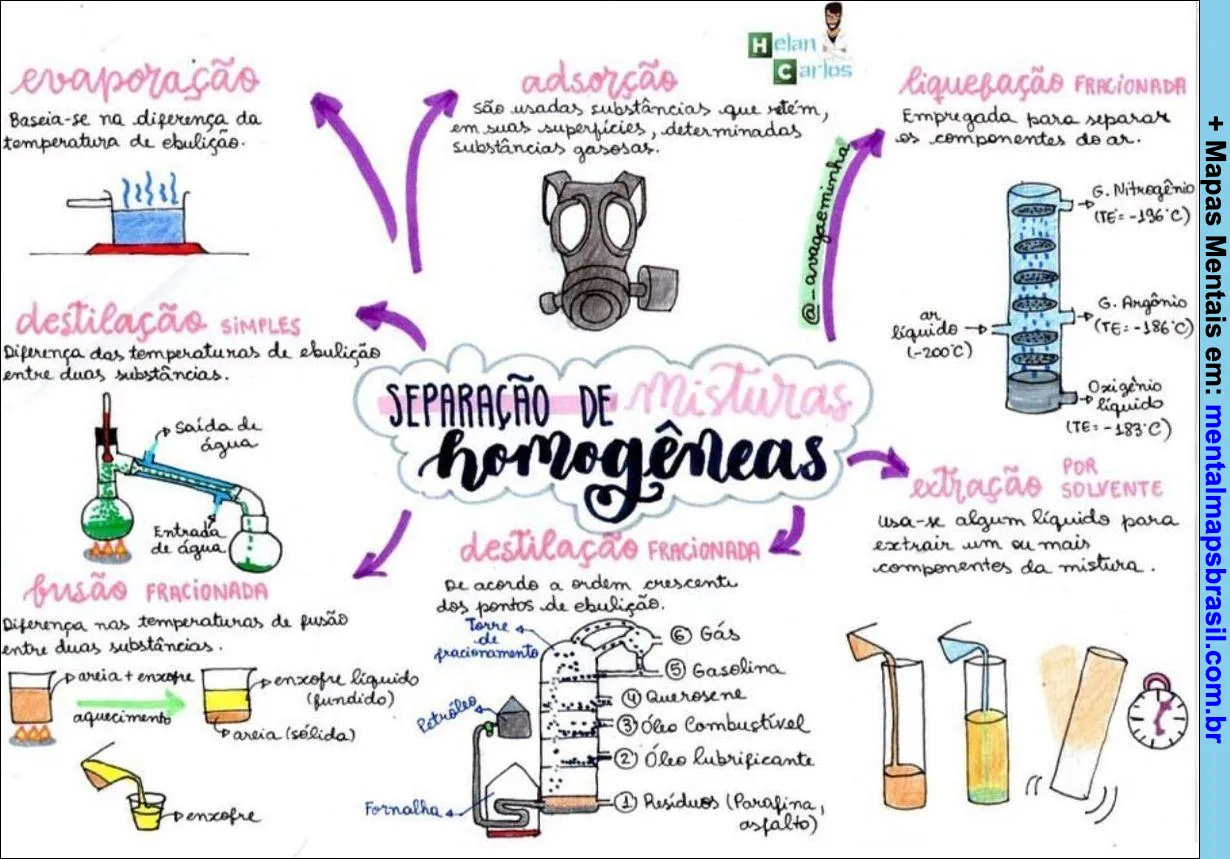 Helan
Carlos
SEPARAÇÃO DE misturas
homogêneas
evaporação
Baseia-se na diferença da
temperatura de ebulição.
adsorção
São usadas substâncias que retém,
em suas superfícies, determinadas
substâncias gasosas.
@-avagaeminha
liquefação FRACIONADA
Empregada para separar
os componentes do ar.
G. Nitrogênio
(TE= -196°C)
G. Argônio
(TE: -186°C)
ar
líquido
(-200°C)
Oxigênio
líquido
(TE= -183°C)
destilação SIMPLES
Diferença das temperaturas de ebulição
entre duas substâncias.
Saída de
água
Entrada
de água
extração POR
SOLVENTE
usa-se algum líquido para
extrair um ou mais
componentes da mistura.
fusão FRACIONADA
Diferença nas temperaturas de fusão
entre duas substâncias.
areia + enxofre
aquecimento
enxofre líquido
(fundido)
areia (sólida)
enxofre
destilação FRACIONADA
De acordo a ordem crescente
dos pontos de ebulição.
Torre
de
fracionamento
Petróleo
Fornalha
6 Gás
5 Gasolina
4 Querosene
3 Óleo Combustível
2 Óleo lubrificante
1 Resíduos (Parafina,
asfalto)
+ Mapas Mentais em: mentalmapsbrasil.com.br